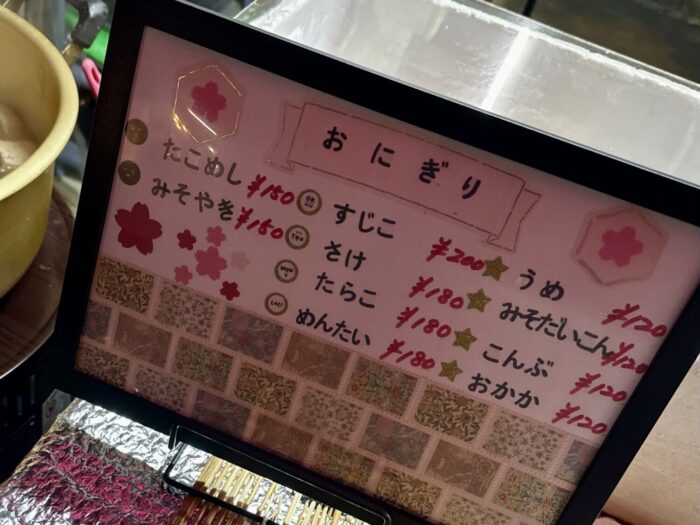 おにぎり
たこめし ¥150
みそやき ¥150
すじこ ¥200
さけ ¥180
たらこ ¥180
めんたい ¥180
うめ ¥120
みそだいこん ¥120
こんぶ ¥120
おかか ¥120